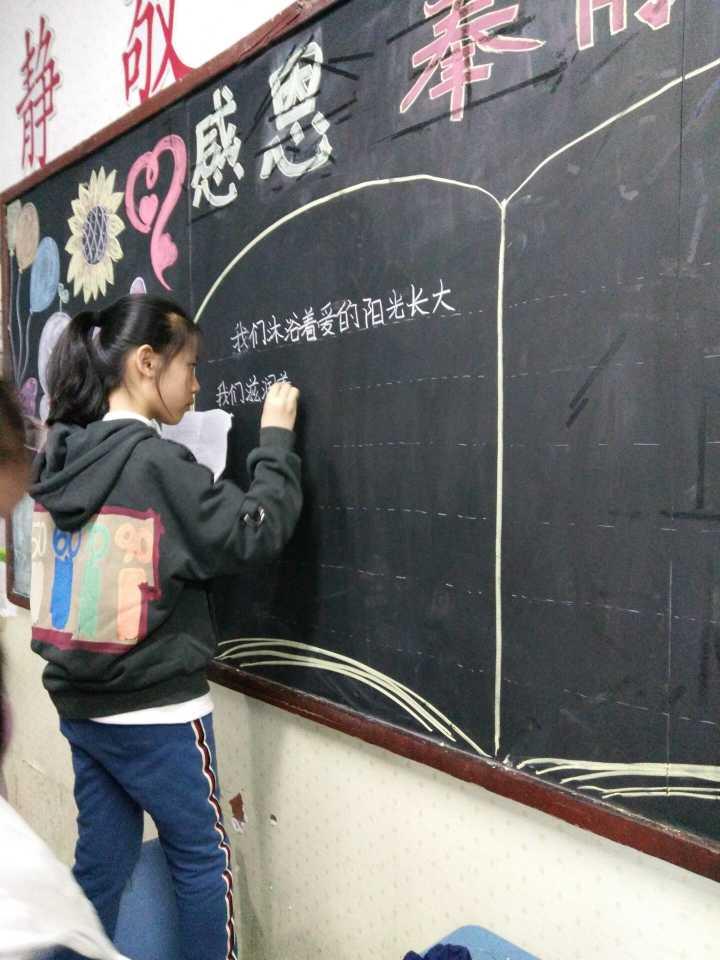 静 敬
感恩 奉
我们沐浴着爱的阳光长大
我们滋润着
60 90